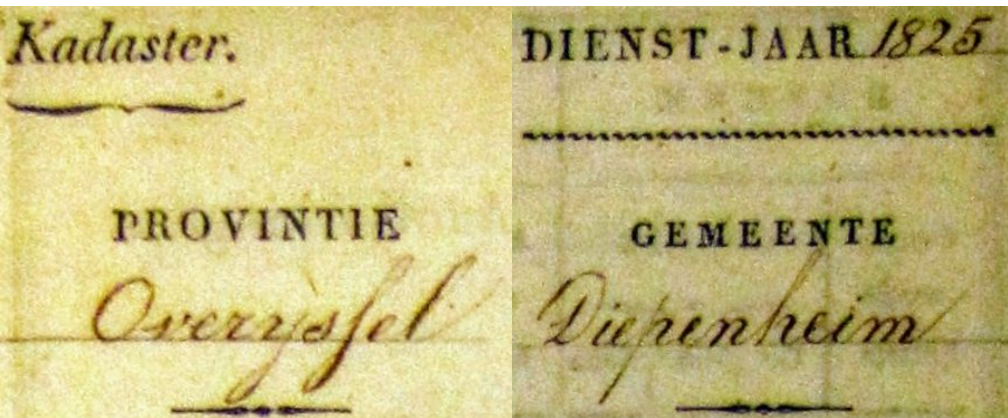 Kadaster.
PROVINTIE
Overysſel
DIENST-JAAR 1825
GEMEENTE
Diepenheim